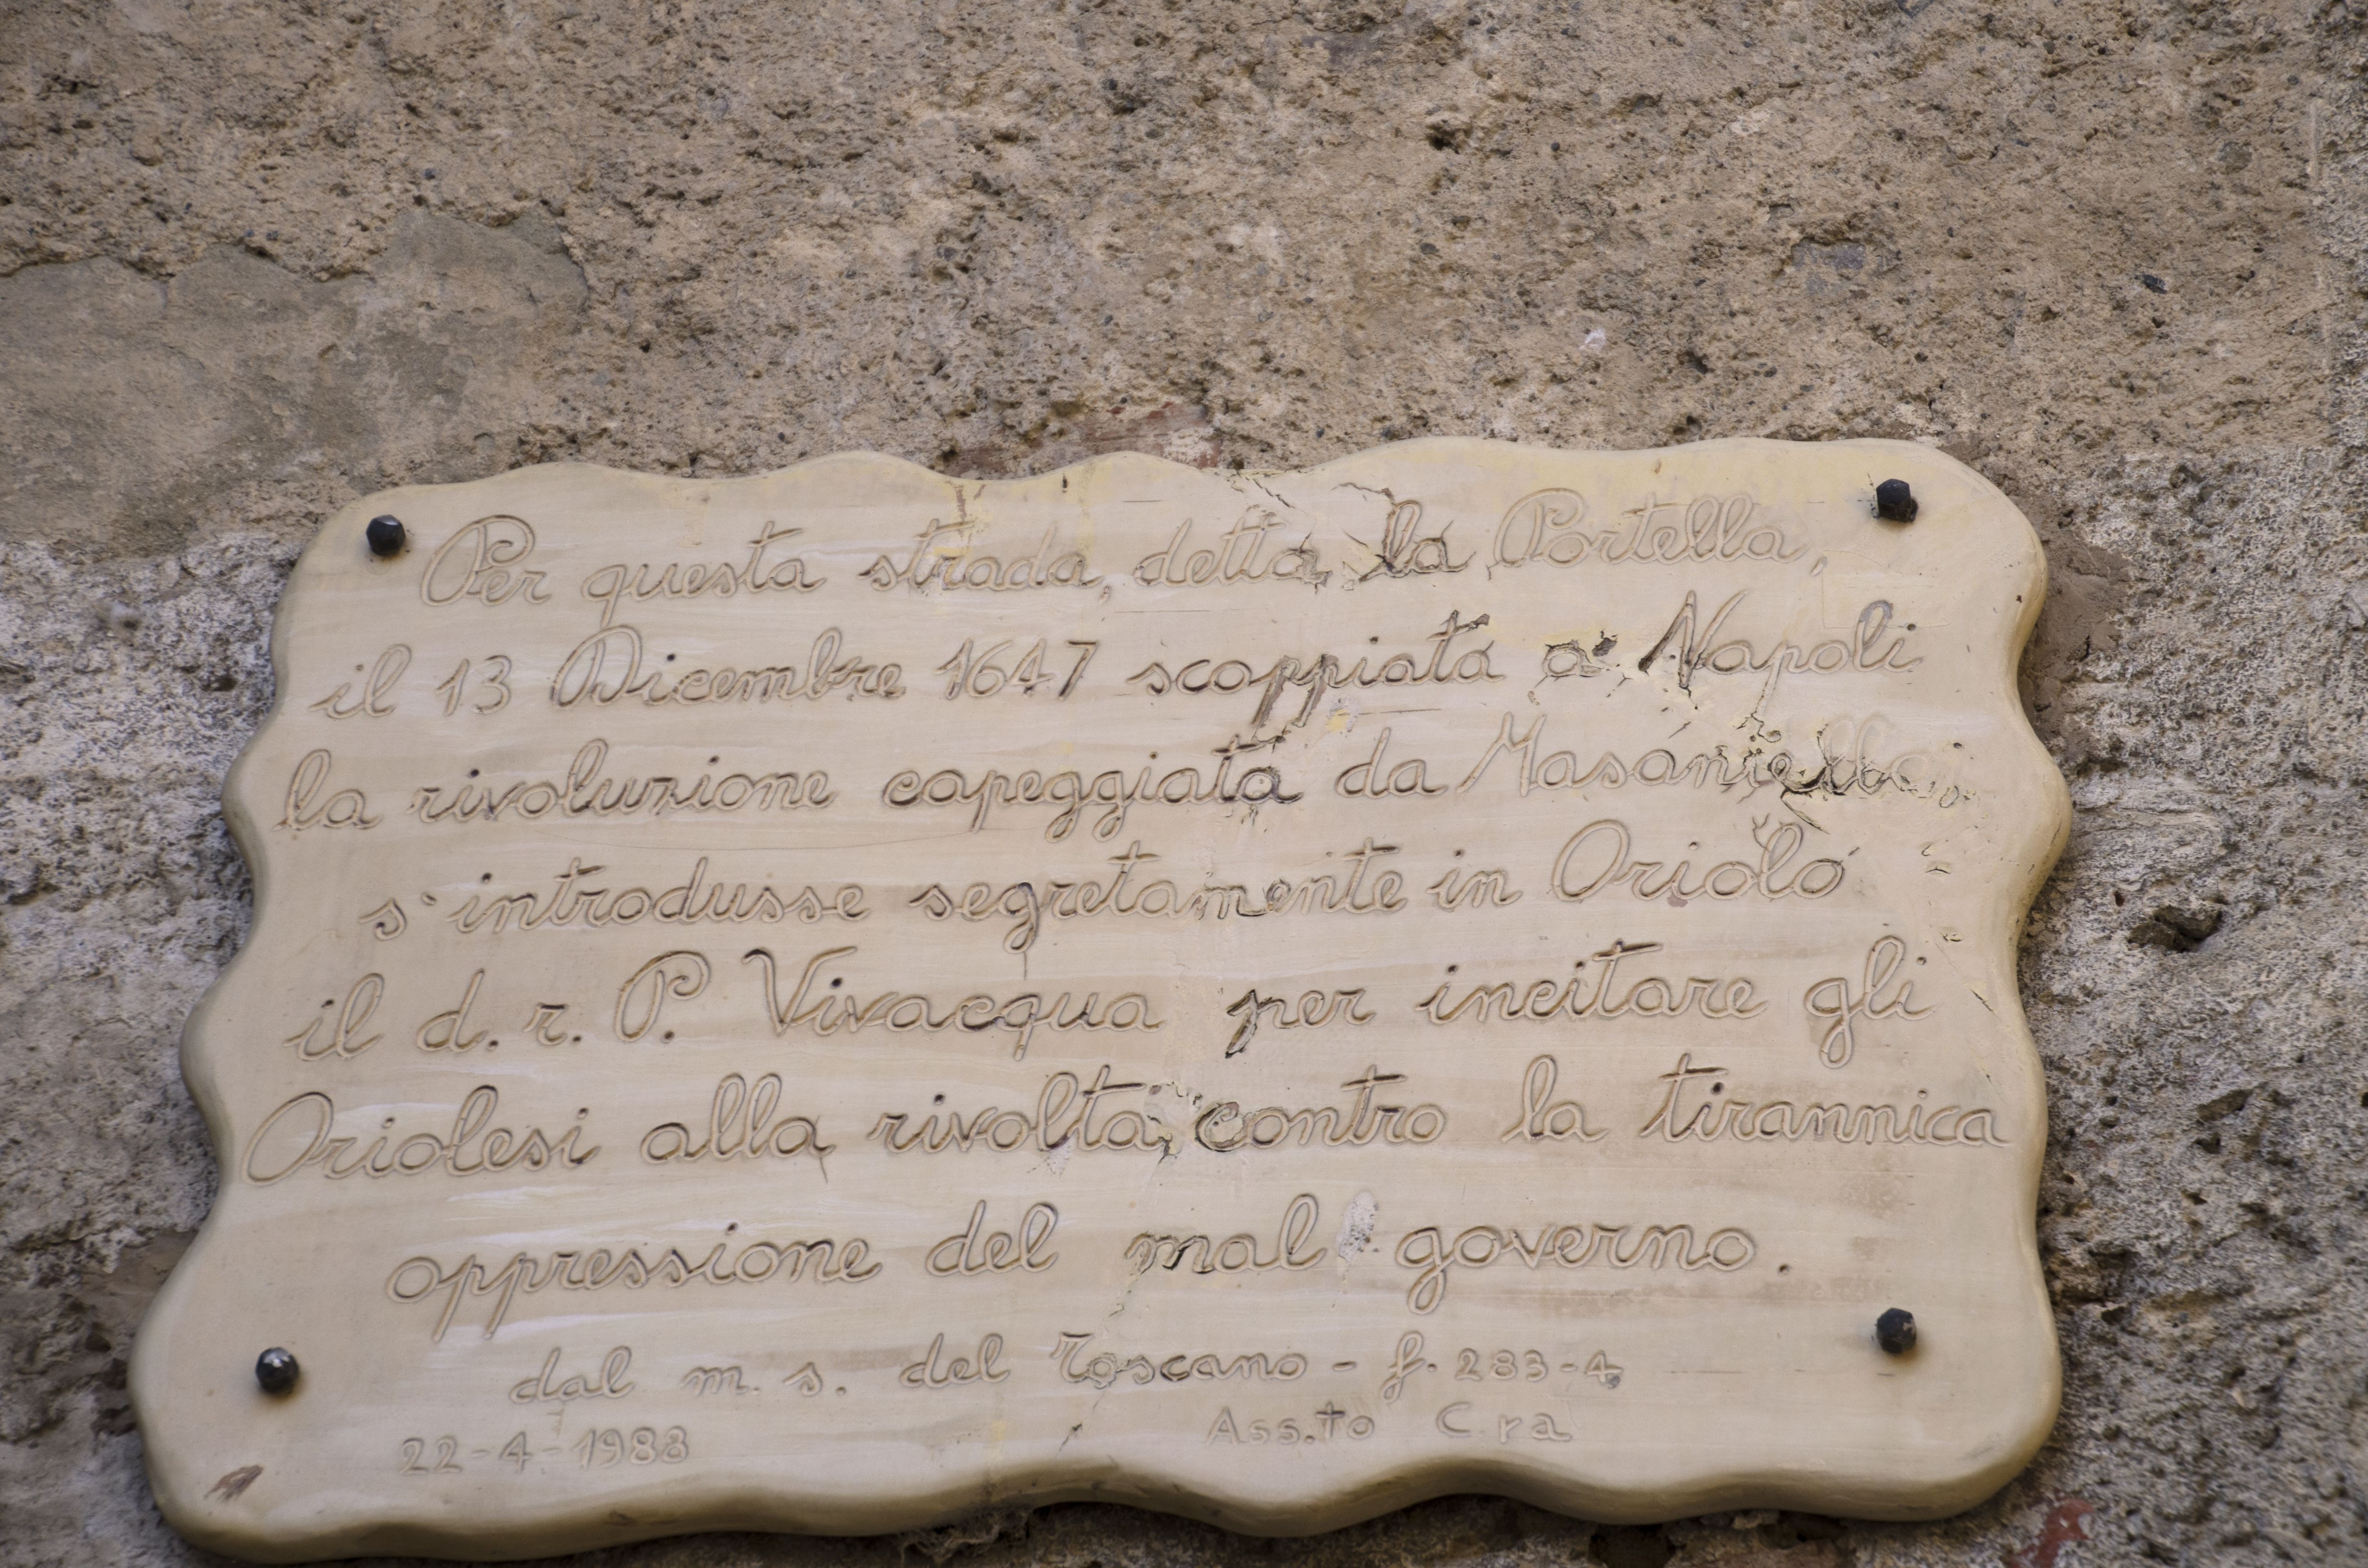 Per questa strada, detta la Portella,
il 13 Dicembre 1647 scoppiata a Napoli
la rivoluzione capeggiata da Masaniello,
s'introdusse segretamente in Oriolo
il d. r. P. Vivacqua per incitare gli
Oriolesi alla rivolta contro la tirannica
oppressione del mal governo.
dal m. s. del Toscano - f. 283-4
Ass.to C r a
22-4-1988